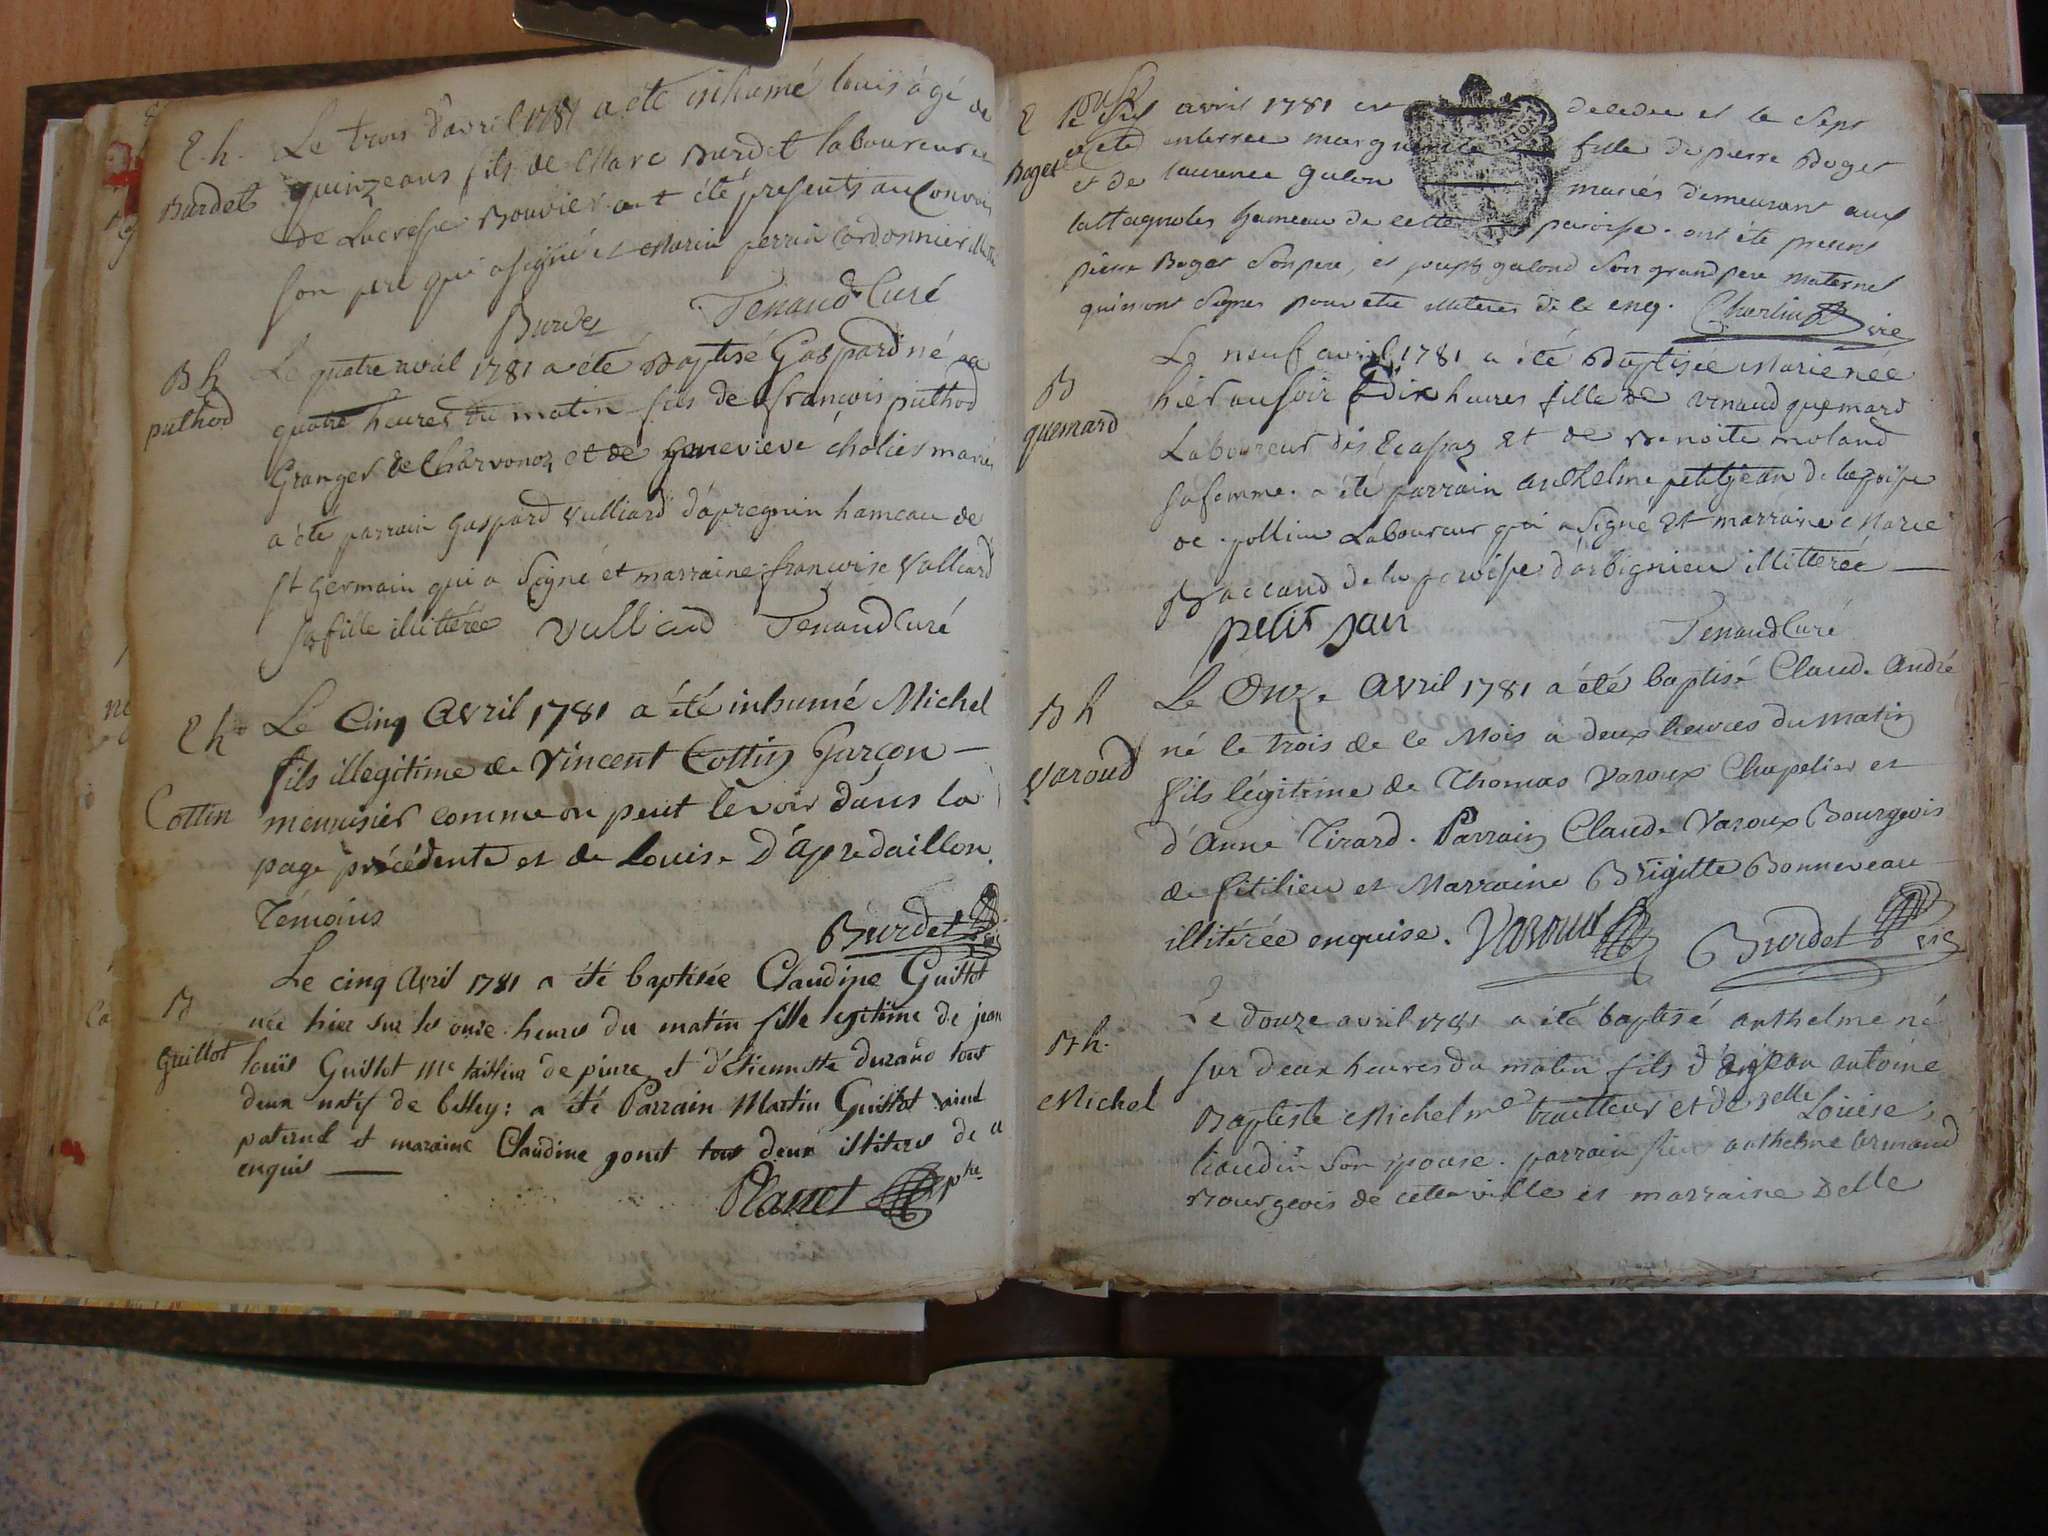 E. h.
Burdet
Le trois d'avril 1781 a été inhumé louis âgé de
quinze ans fils de Marc Burdet laboureur et
de Lucresse Bouvier ont été presents au Convoi
son pere qui a signé et Marin perrin Cordonnier
Burdet Tenaud Curé
B h
puthod
Le quatre avril 1781 a été Baptisé Gaspard né a
quatre heures du matin fils de françois puthod
Granger de Charvonoz et de genevieve choliet mariés
a été parrain gaspard Vulliard d'apregnin hameau de
St germain qui a signé et marraine françoise Vulliard
sa fille illitérée Vulliard Tenaud Curé
E h
Cottin
Le Cinq Avril 1781 a été inhumé Michel
fils illegitime de Vincent Cottin Garçon
menuisier comme on peut le voir dans la
page précédente et de Louise D'apredaillon.
Témoins Burdet vic
B
Guillot
Le cinq Avril 1781 a été baptisée Claudine Guillot
née hier sur les onze heures du matin fille legitime de jean
louis Guillot me tailleur de pierre et d'Etiennette durand tous
deux natif de belley: a été Parrain Martin Guillot aieul
paternel et maraine Claudine gonet tous deux illiteres de ce
enquis
Planet ptre
E
Boget
avril 1781 est decedee et le Sept
a eté enterree marguerite fille de pierre Boget
et de laurence galon mariés demeurant aux
lattagnoles hameau de cette paroisse. ont été present
pierre Boget Son pere, et joseph galond Son grand pere maternel
qui n'ont Signes pour etre illiteres de ce enq. Charlin vic
B
guemard
Le neuf avril 1781 a été Baptisée Marie née
hier au soir à dix heures fille de Venaud guemard
Laboureur des Ecassaz Et de Benoite moland
sa femme. a été parrain anthelme petitjean de lapoipe
de pollieu Laboureur qui a signé Et marraine Marie
Baccand de la paroisse d'arbignieu illitterée
petit jan Tenaud Curé
B h
Varoud
Le Onze Avril 1781 a été baptisé Claude André
né le trois de ce Mois a deux heures du matin
fils légitime de Thomas Varoux Chapelier et
d'Anne Tirard. Parrain Claude Varoux Bourgeois
de fitilieu et Marraine Brigitte Bonneveau
illitérée enquise. Varoud Burdet vic
B h.
Michel
Le douze avril 1781 a été baptisé anthelme né
sur deux heures du matin fils d' jean antoine
Baptiste Michel me traitteur et de delle Louise
liaudin son epouse. parrain sieur anthelme armand
Bourgeois de cette ville et marraine Delle